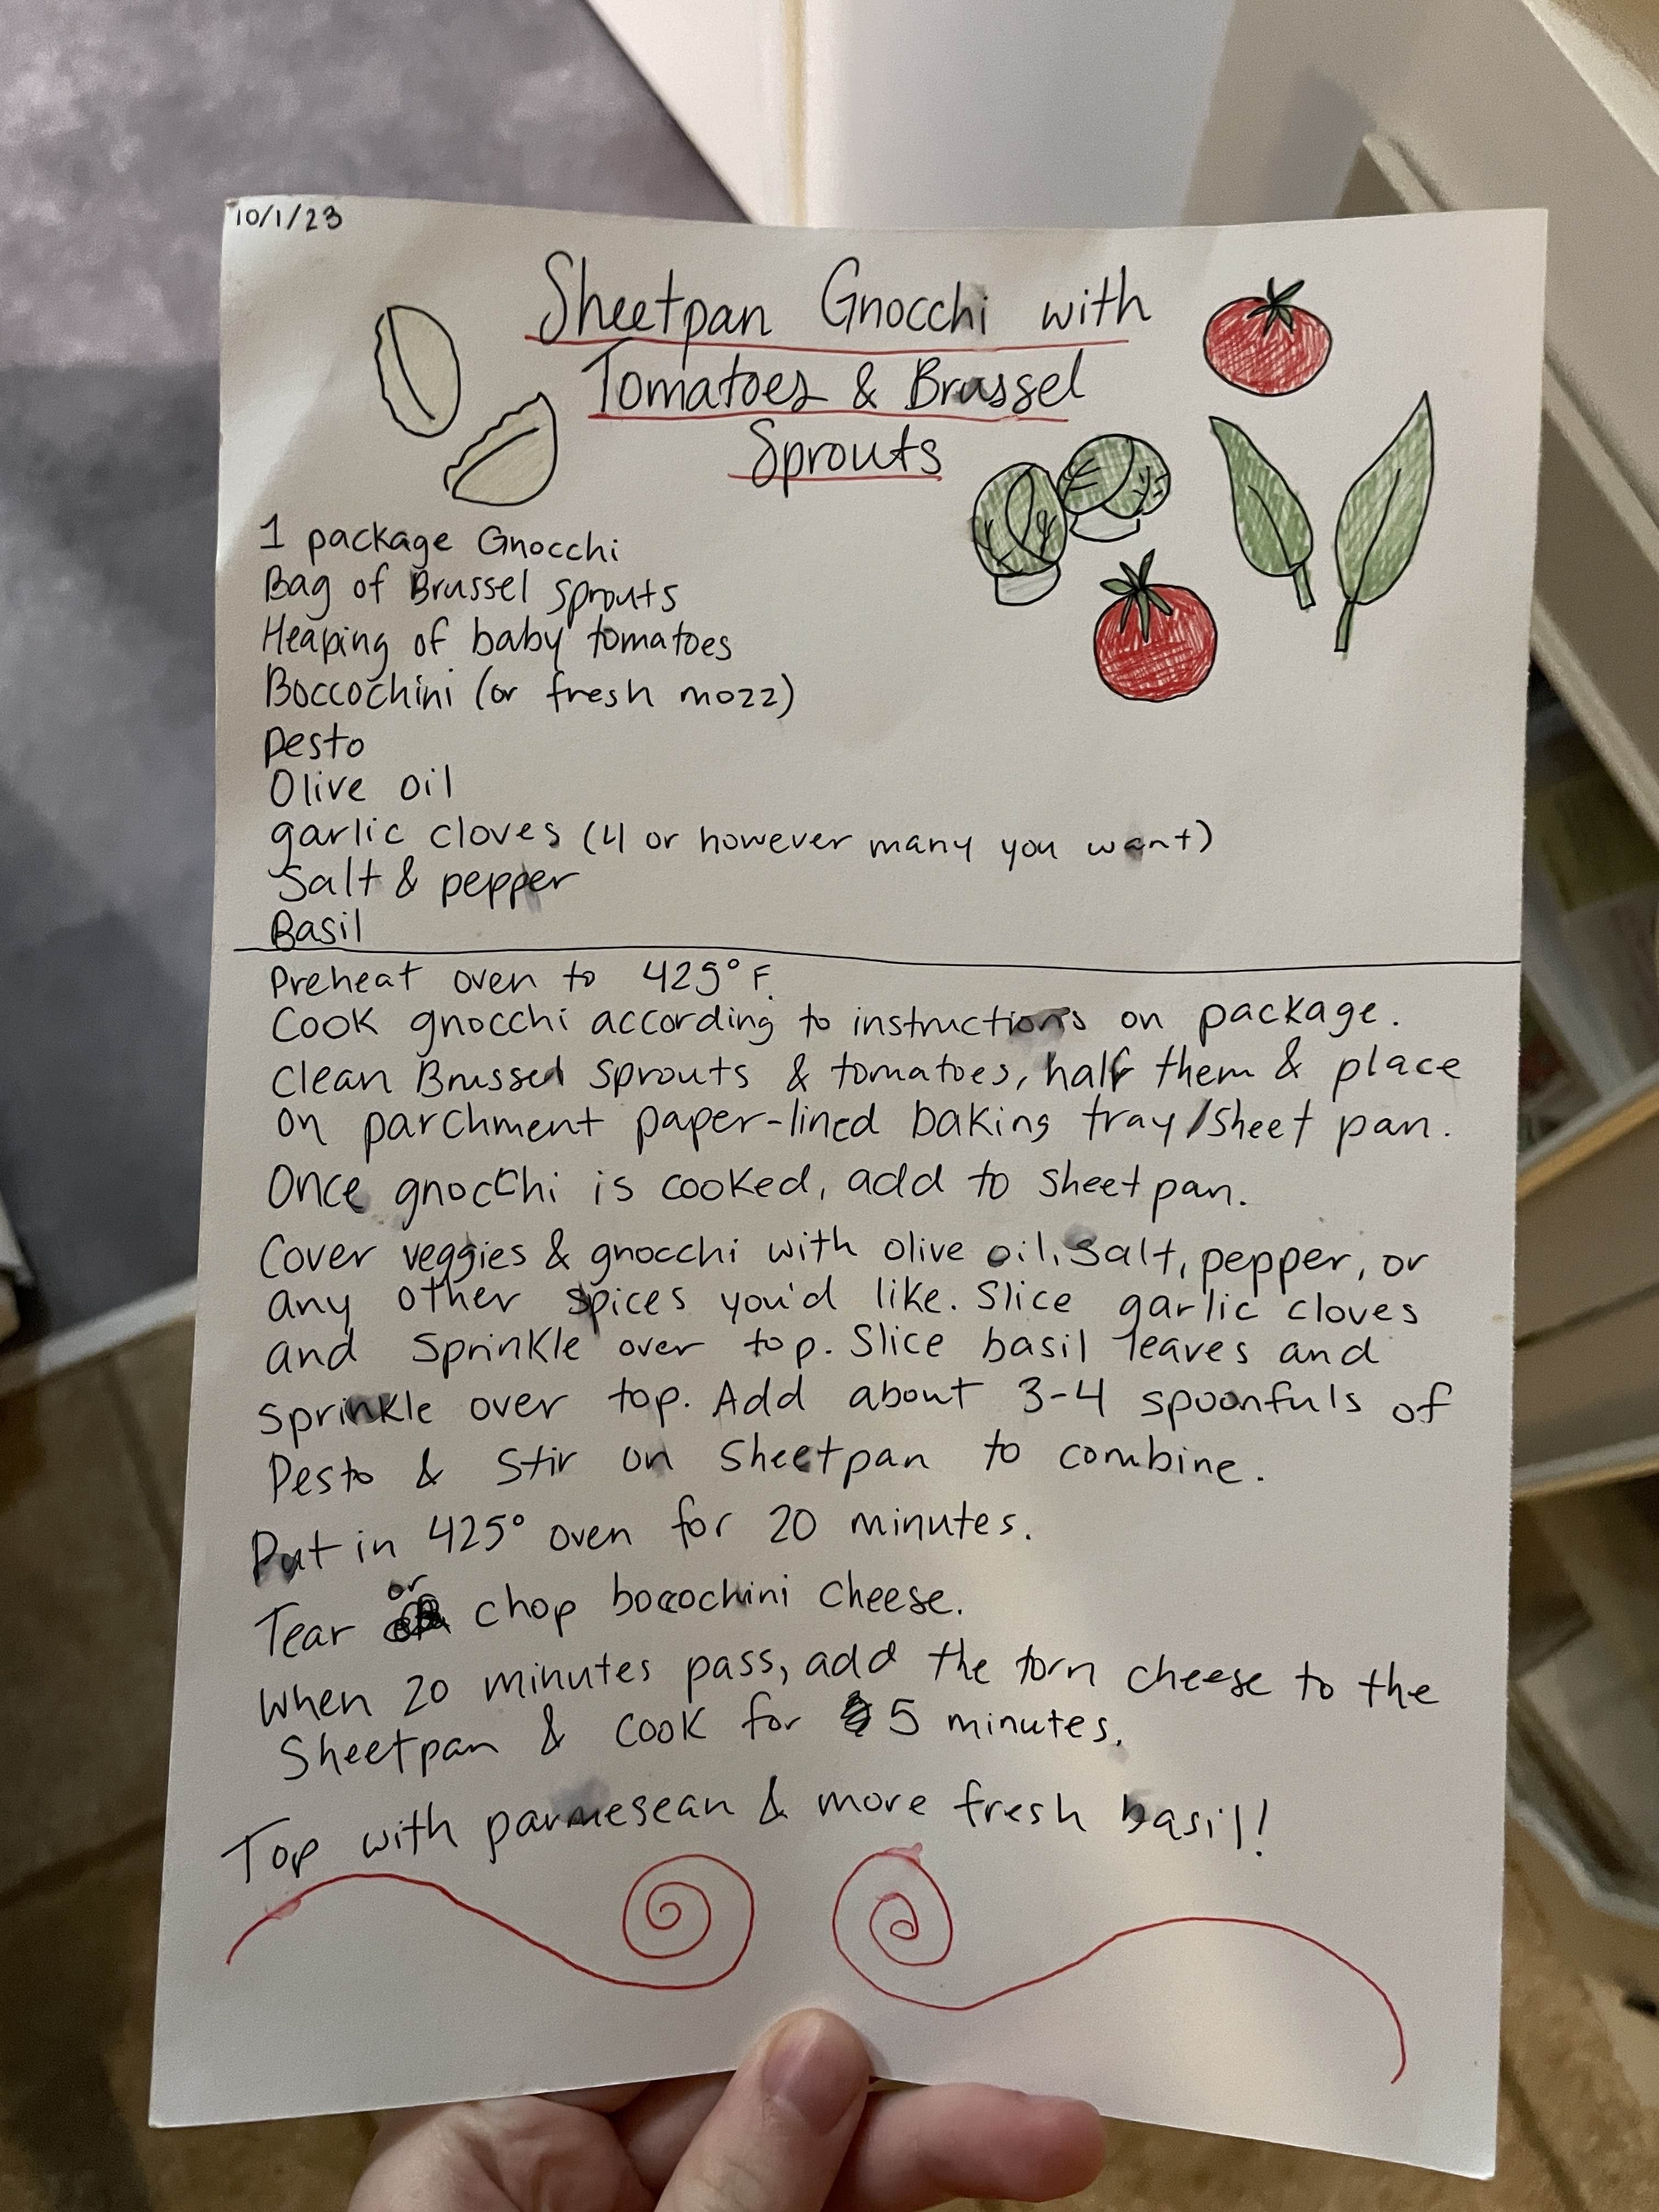 10/1/23
Sheetpan Gnocchi with
Tomatoes & Brussel
Sprouts
1 package Gnocchi
Bag of Brussel sprouts
Heaping of baby tomatoes
Boccochini (or fresh mozz)
pesto
Olive oil
garlic cloves (4 or however many you want)
Salt & pepper
Basil
Preheat oven to 425° F.
Cook gnocchi according to instructions on package.
Clean Brussel sprouts & tomatoes, half them & place
on parchment paper-lined baking tray/sheet pan.
Once gnocchi is cooked, add to sheet pan.
Cover veggies & gnocchi with olive oil, salt, pepper, or
any other spices you'd like. Slice garlic cloves
and sprinkle over top. Slice basil leaves and
sprinkle over top. Add about 3-4 spoonfuls of
Pesto & stir on sheetpan to combine.
Put in 425° oven for 20 minutes.
Tear or chop bocochini cheese.
When 20 minutes pass, add the torn cheese to the
Sheetpan & cook for 5 minutes.
Top with parmesean & more fresh basil!